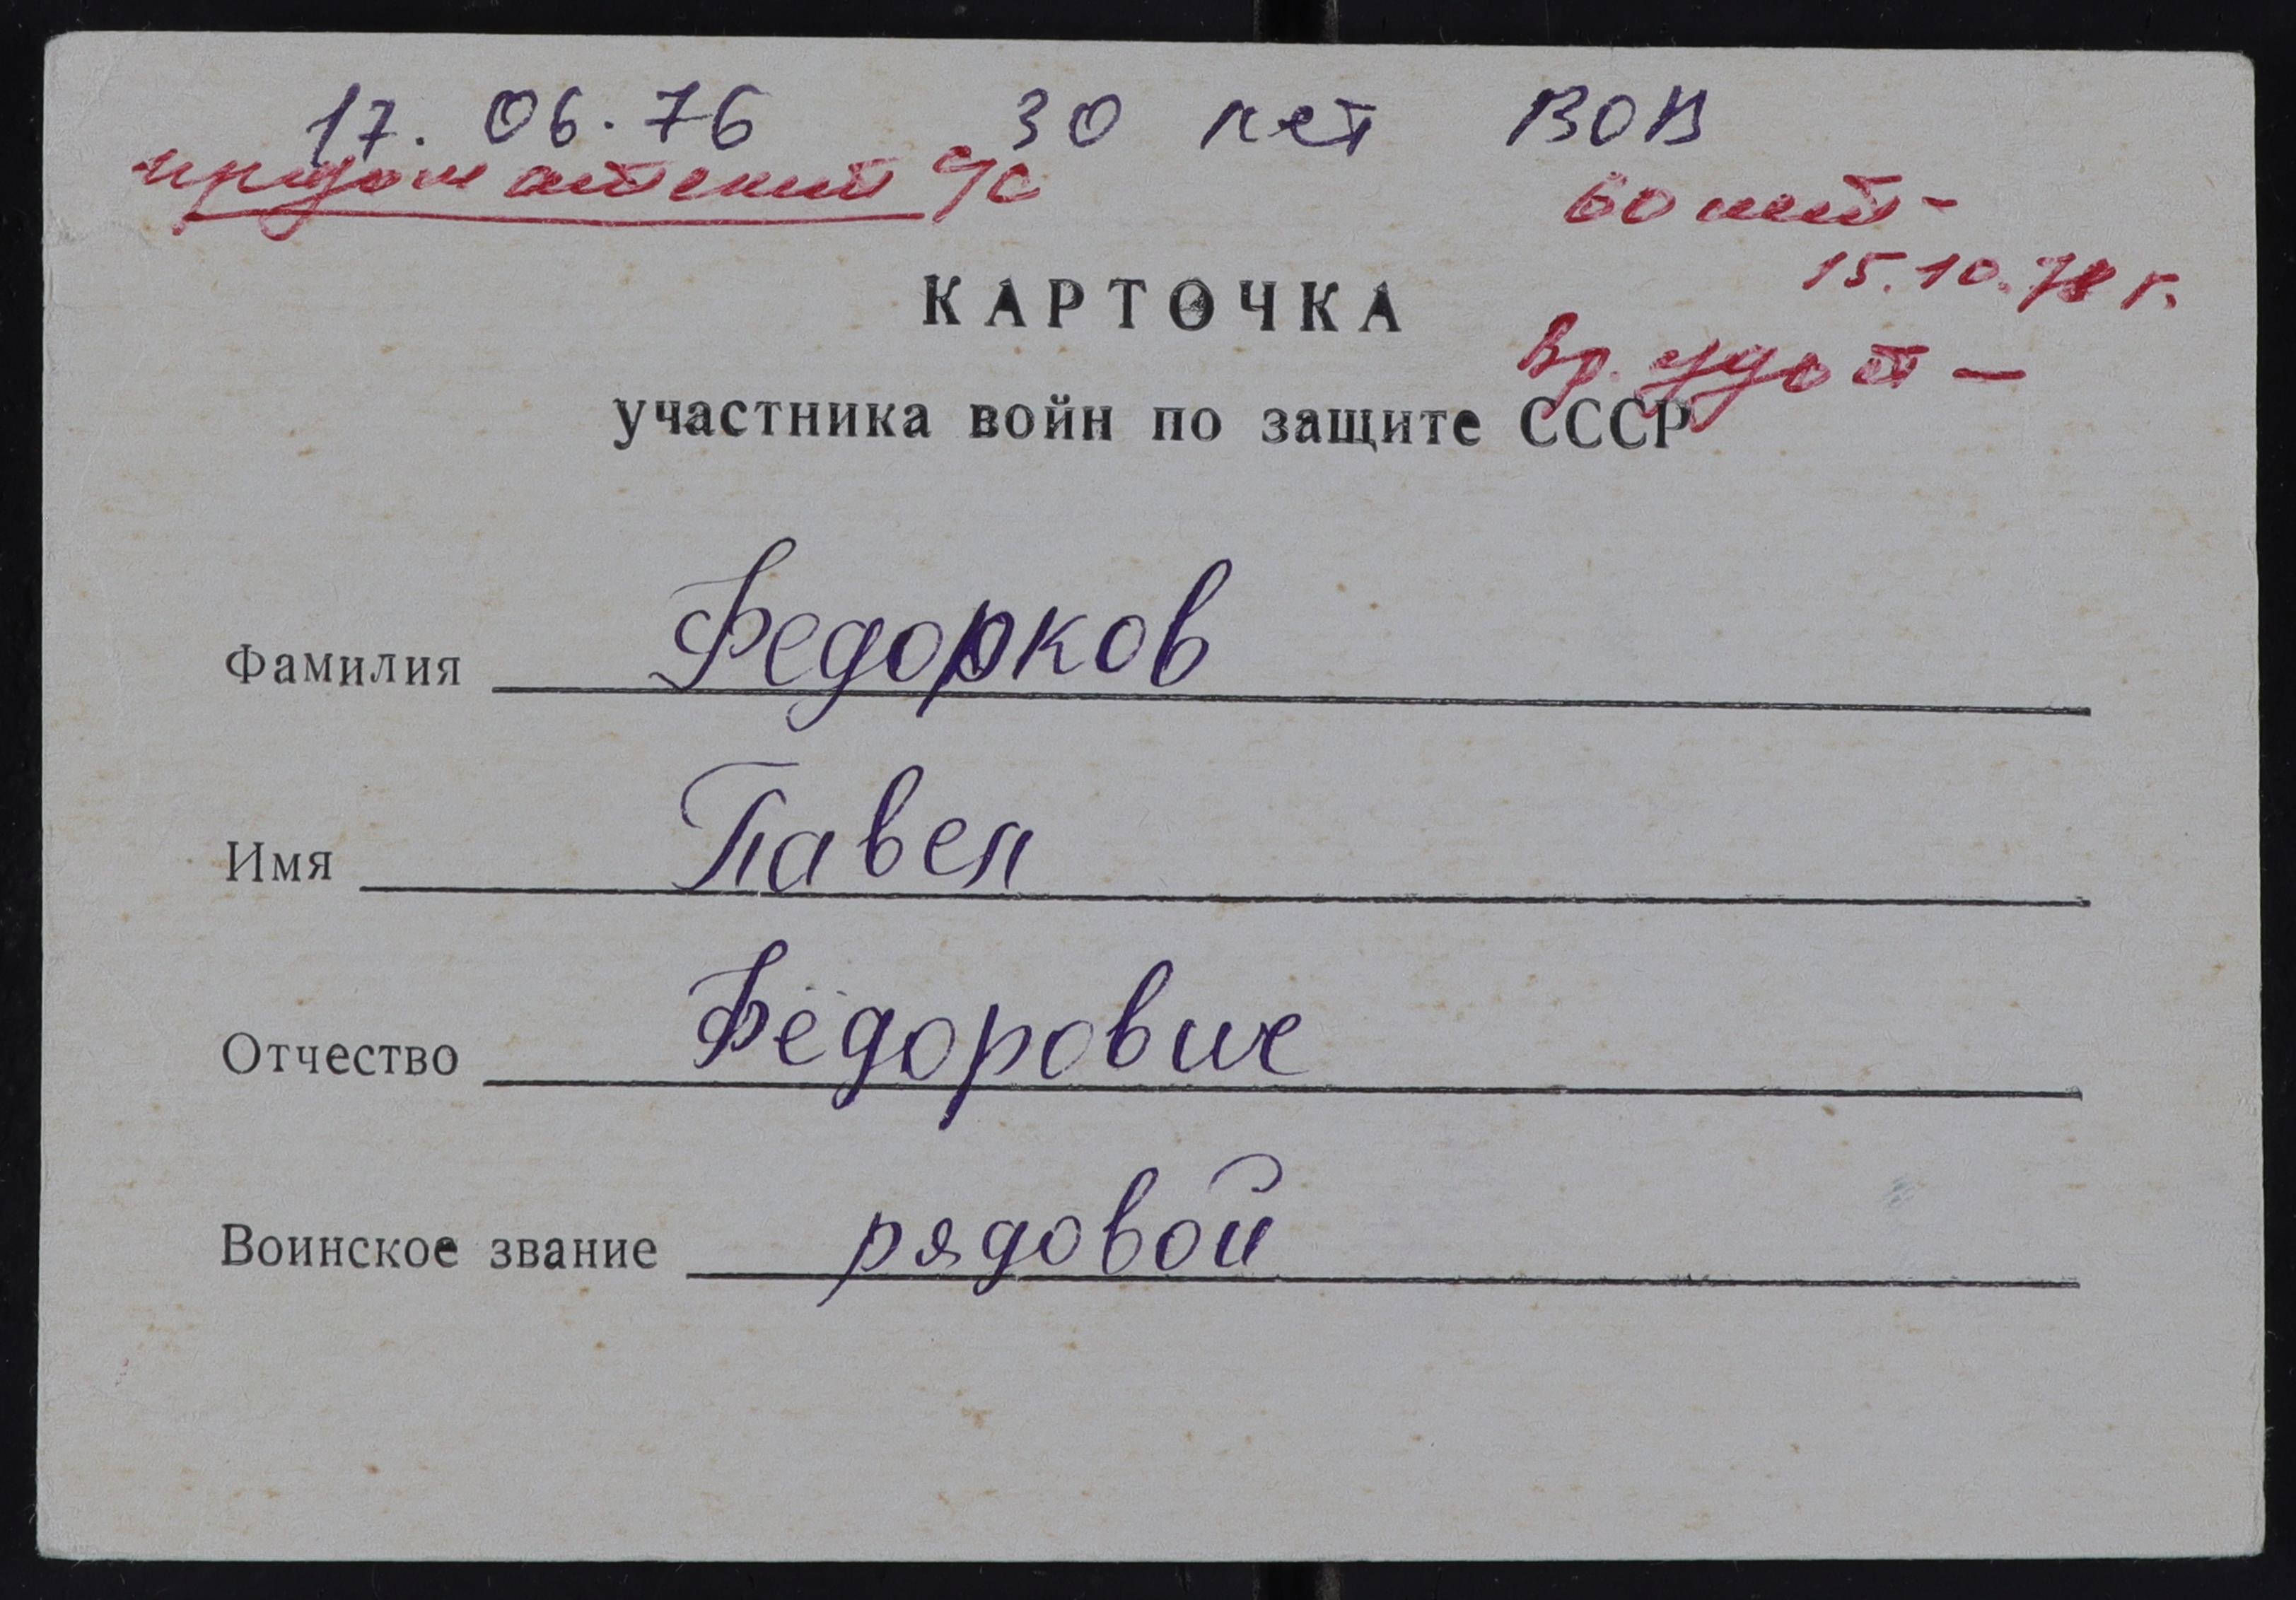 17. 06. 76 30 лет ВОВ
60 лет -
15.10.78 г.
КАРТОЧКА
Вр. удост -
участника войн по защите СССР
Фамилия Федорков
Имя Павел
Отчество Фёдорович
Воинское звание рядовой